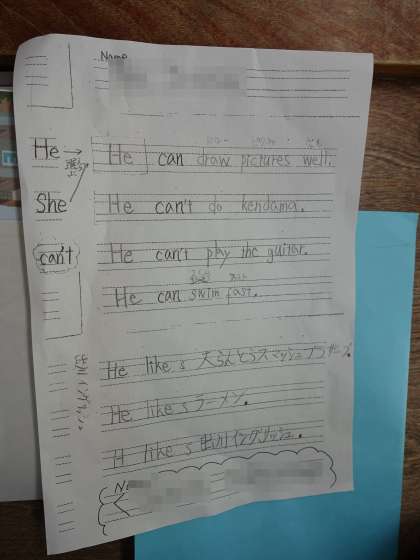 Name
He
She
can't
選ぶ
He can draw pictures well.
He can't do kendama.
He can't play the guitar.
He can swim fast.
出川イングリッシュ
He like s 大らんとうスマッシュブラザーズ.
He like s ラーメン.
H like s 出川イングリッシュ.